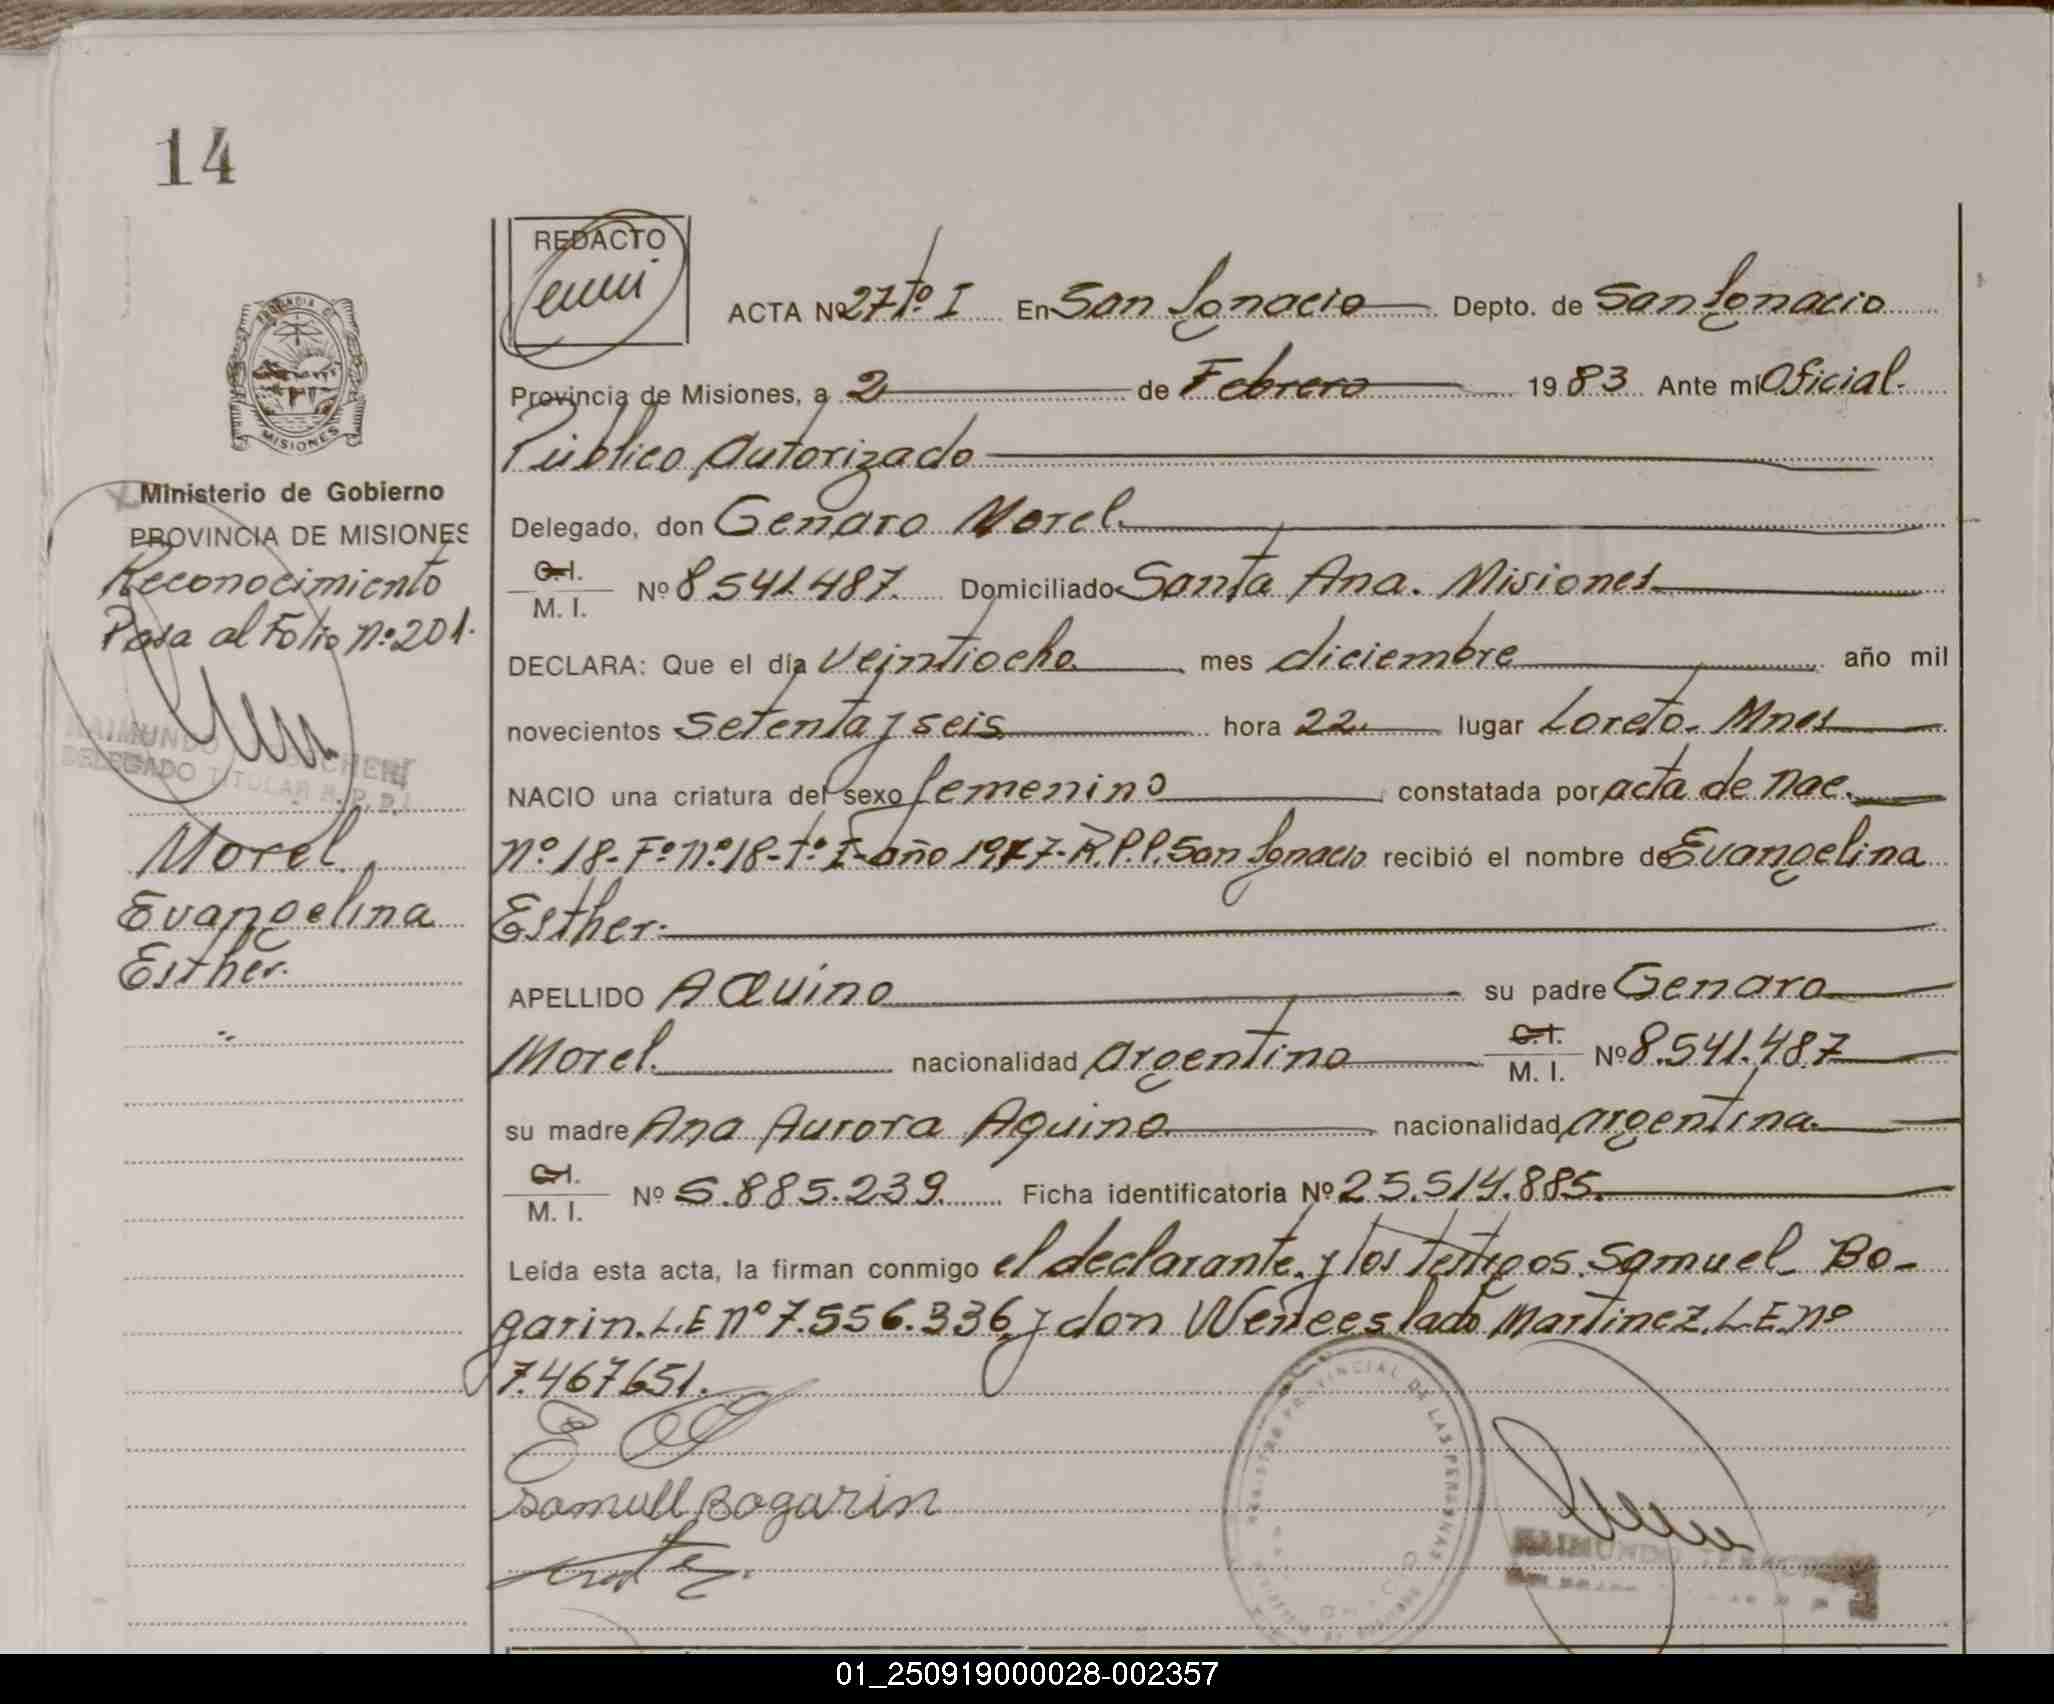 14
REDACTO
ACTA Nº 27 Tº I En San Ignacio Depto. de San Ignacio
Provincia de Misiones, a 2 de Febrero 1983 Ante mi Oficial
Público Autorizado
Delegado, don Genaro Morel
C.I. M. I. Nº 8541.487. Domiciliado Santa Ana. Misiones
DECLARA: Que el día veintiocho mes diciembre año mil
novecientos setenta y seis hora 22 lugar Loreto. Mnes
NACIO una criatura del sexo femenino constatada por acta de nac.
nº 18- Fº nº 18- Tº I- año 1977- R.P.P. San Ignacio recibió el nombre de Evangelina
Esther.
APELLIDO AQuino su padre Genaro
Morel. nacionalidad argentino C.I. M. I. Nº 8.541.487
su madre Ana Aurora Aquino nacionalidad argentina.
C.I. M. I. Nº 5.885.239. Ficha identificatoria Nº 25.514.885.
Leída esta acta, la firman conmigo el declarante. y los testigos. Samuel. Bo-
garin. L.E nº 7.556.336 y don Wenceslado Martinez. L.E. nº
7.467651.
Samuel Bogarin
REGISTRO PROVINCIAL DE LAS PERSONAS
RAIMUNDO
PROVINCIA
MISIONES
Ministerio de Gobierno
PROVINCIA DE MISIONES
Reconocimiento
Pasa al Folio nº 201.
RAIMUNDO
DELEGADO TITULAR R. P. P.
Morel
Evangelina
Esther.
01_250919000028-002357